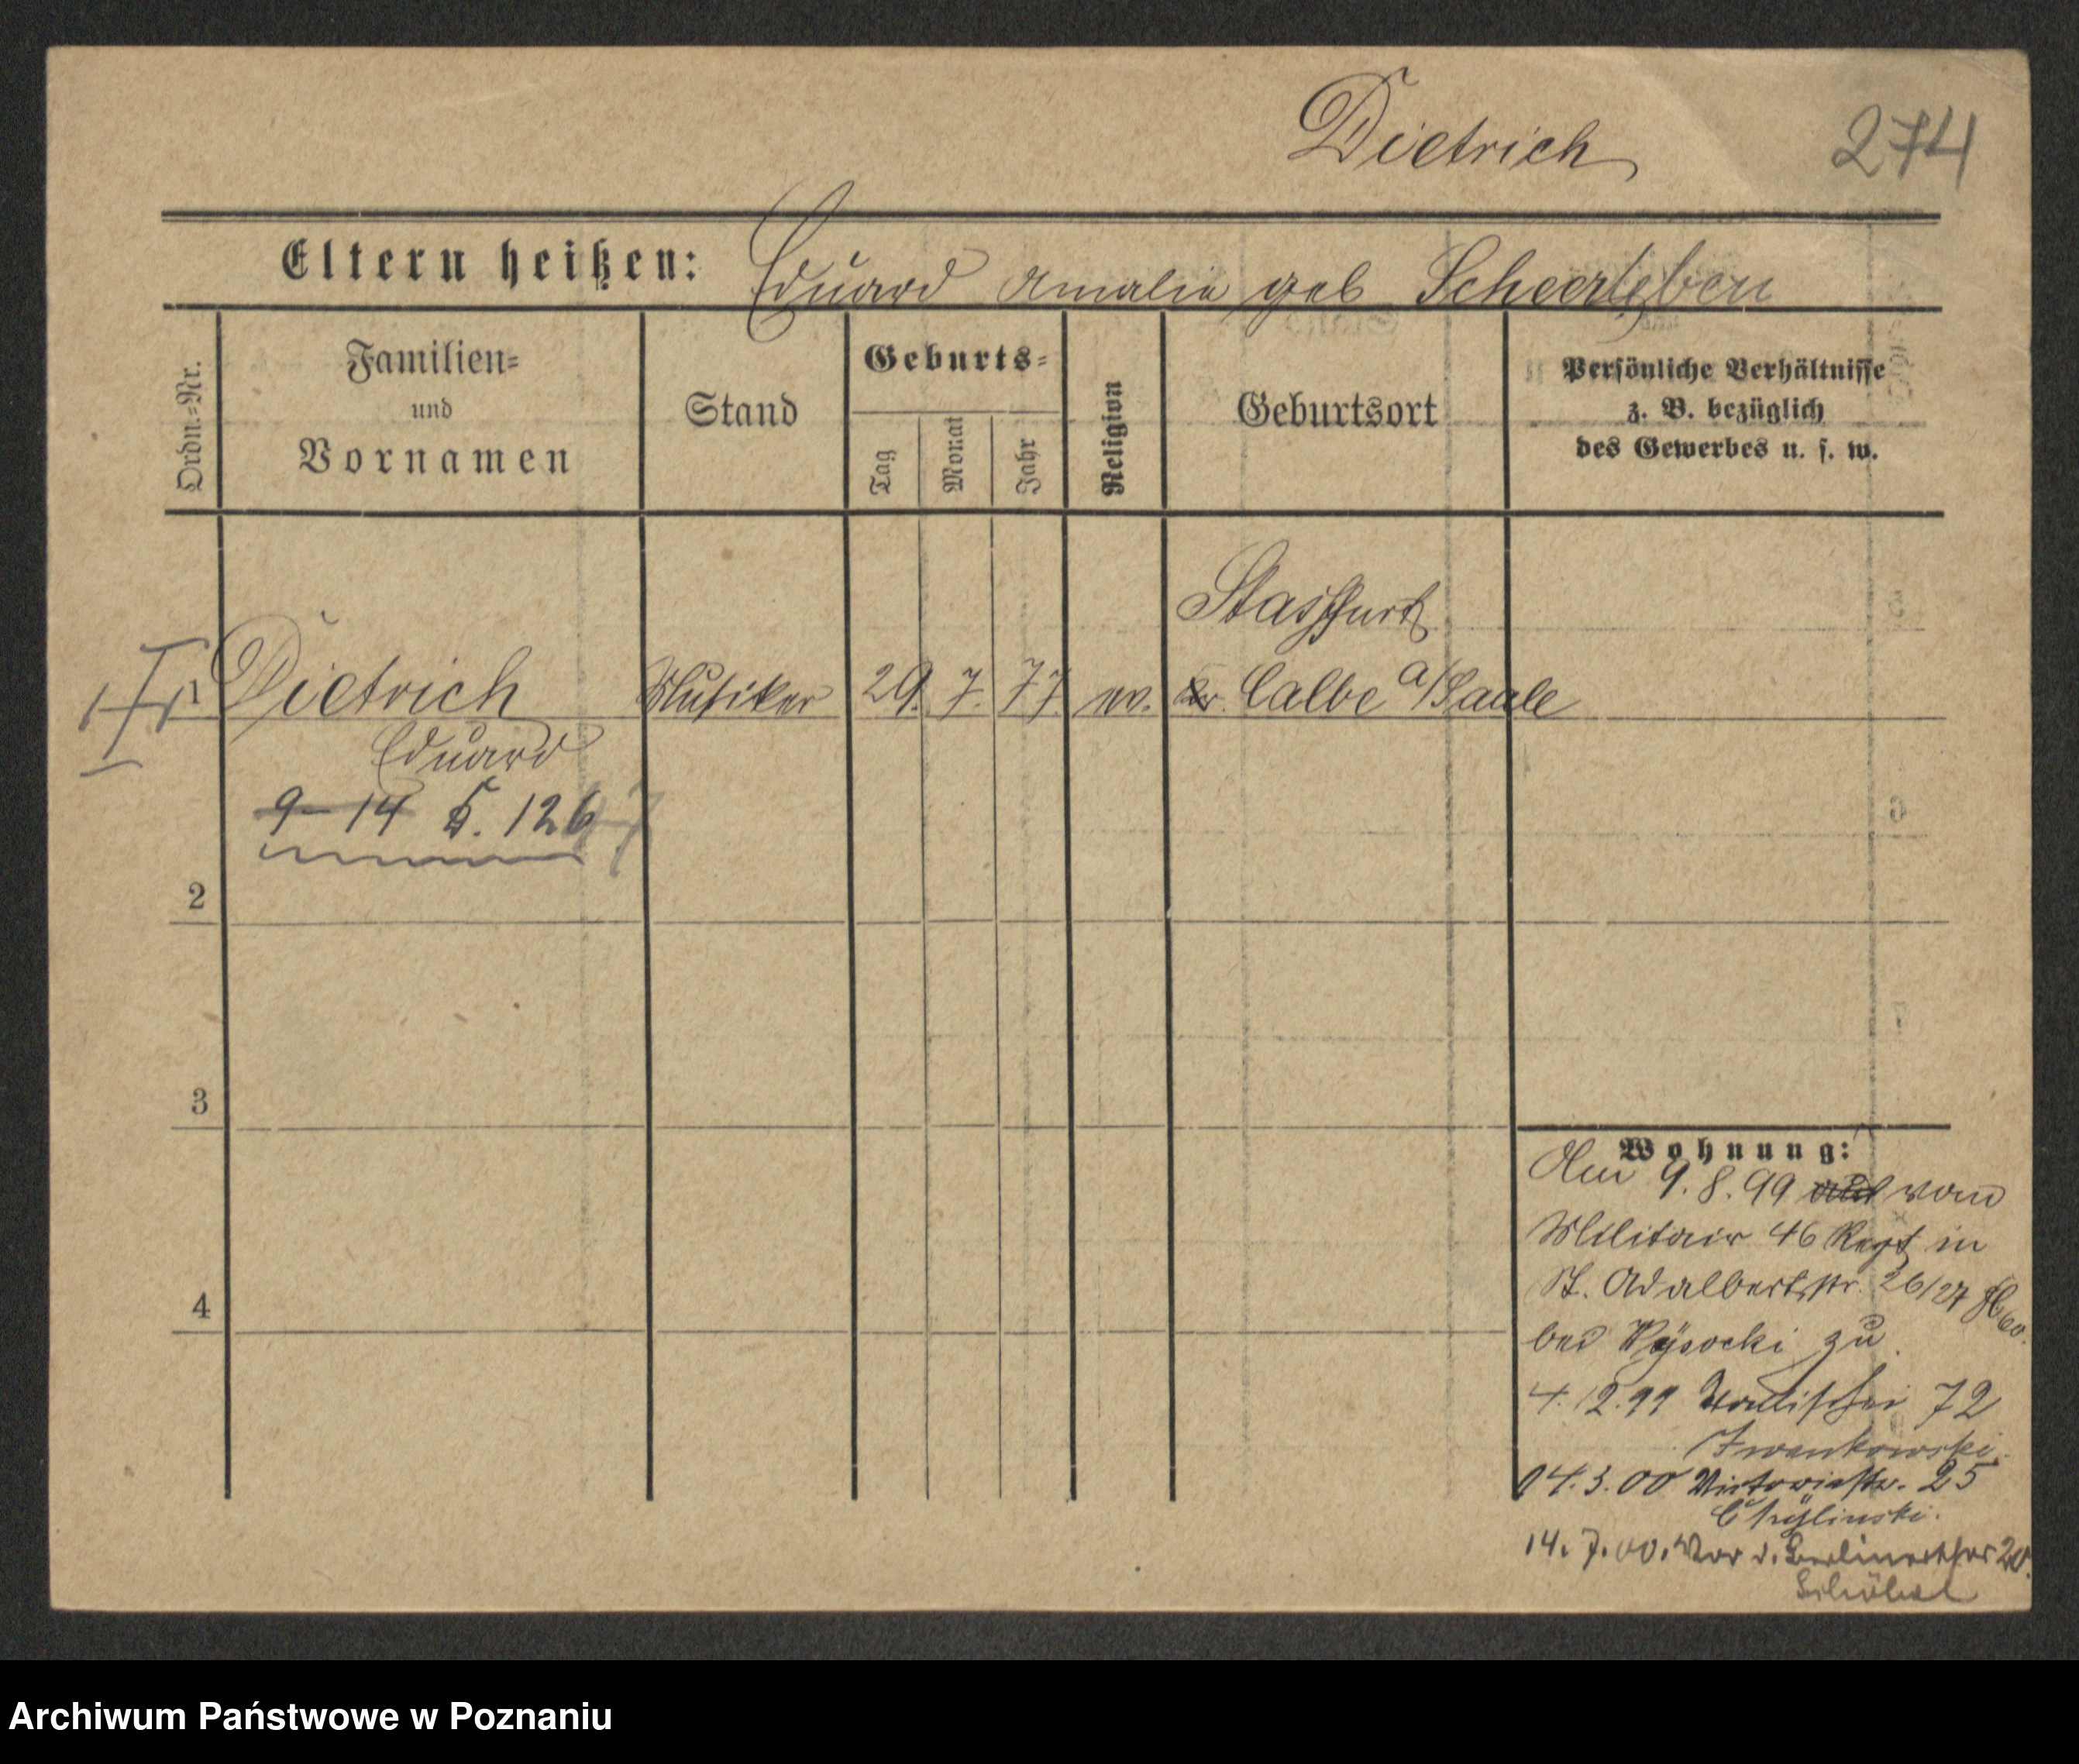 Dietrich 274
Eltern heißen: Eduard Amalie geb Scheerleben
Ordn.=Nr.
Familien=
und
Vornamen
Stand
Geburts=
Tag
Monat
Jahr
Religion
Geburtsort
Persönliche Verhältnisse
z. B. bezüglich
des Gewerbes u. s. w.
Stassfurt
1 Dietrich Musiker 29. 7. 77 ev. Kr. Calbe a/Saale
Eduard
9-14 5. 126
2
3
4
Wohnung:
Am 9.8.99 vom
Militair 46 Regt in
St. Adalbertstr. 26/27
bei Wysocki zu
4.12.99 Wallischei 72
Iwankowski
14.3.00 Victoriastr. 25
Chylinski.
14.7.00. Vor d. Berlinerthor 20.
Archiwum Państwowe w Poznaniu